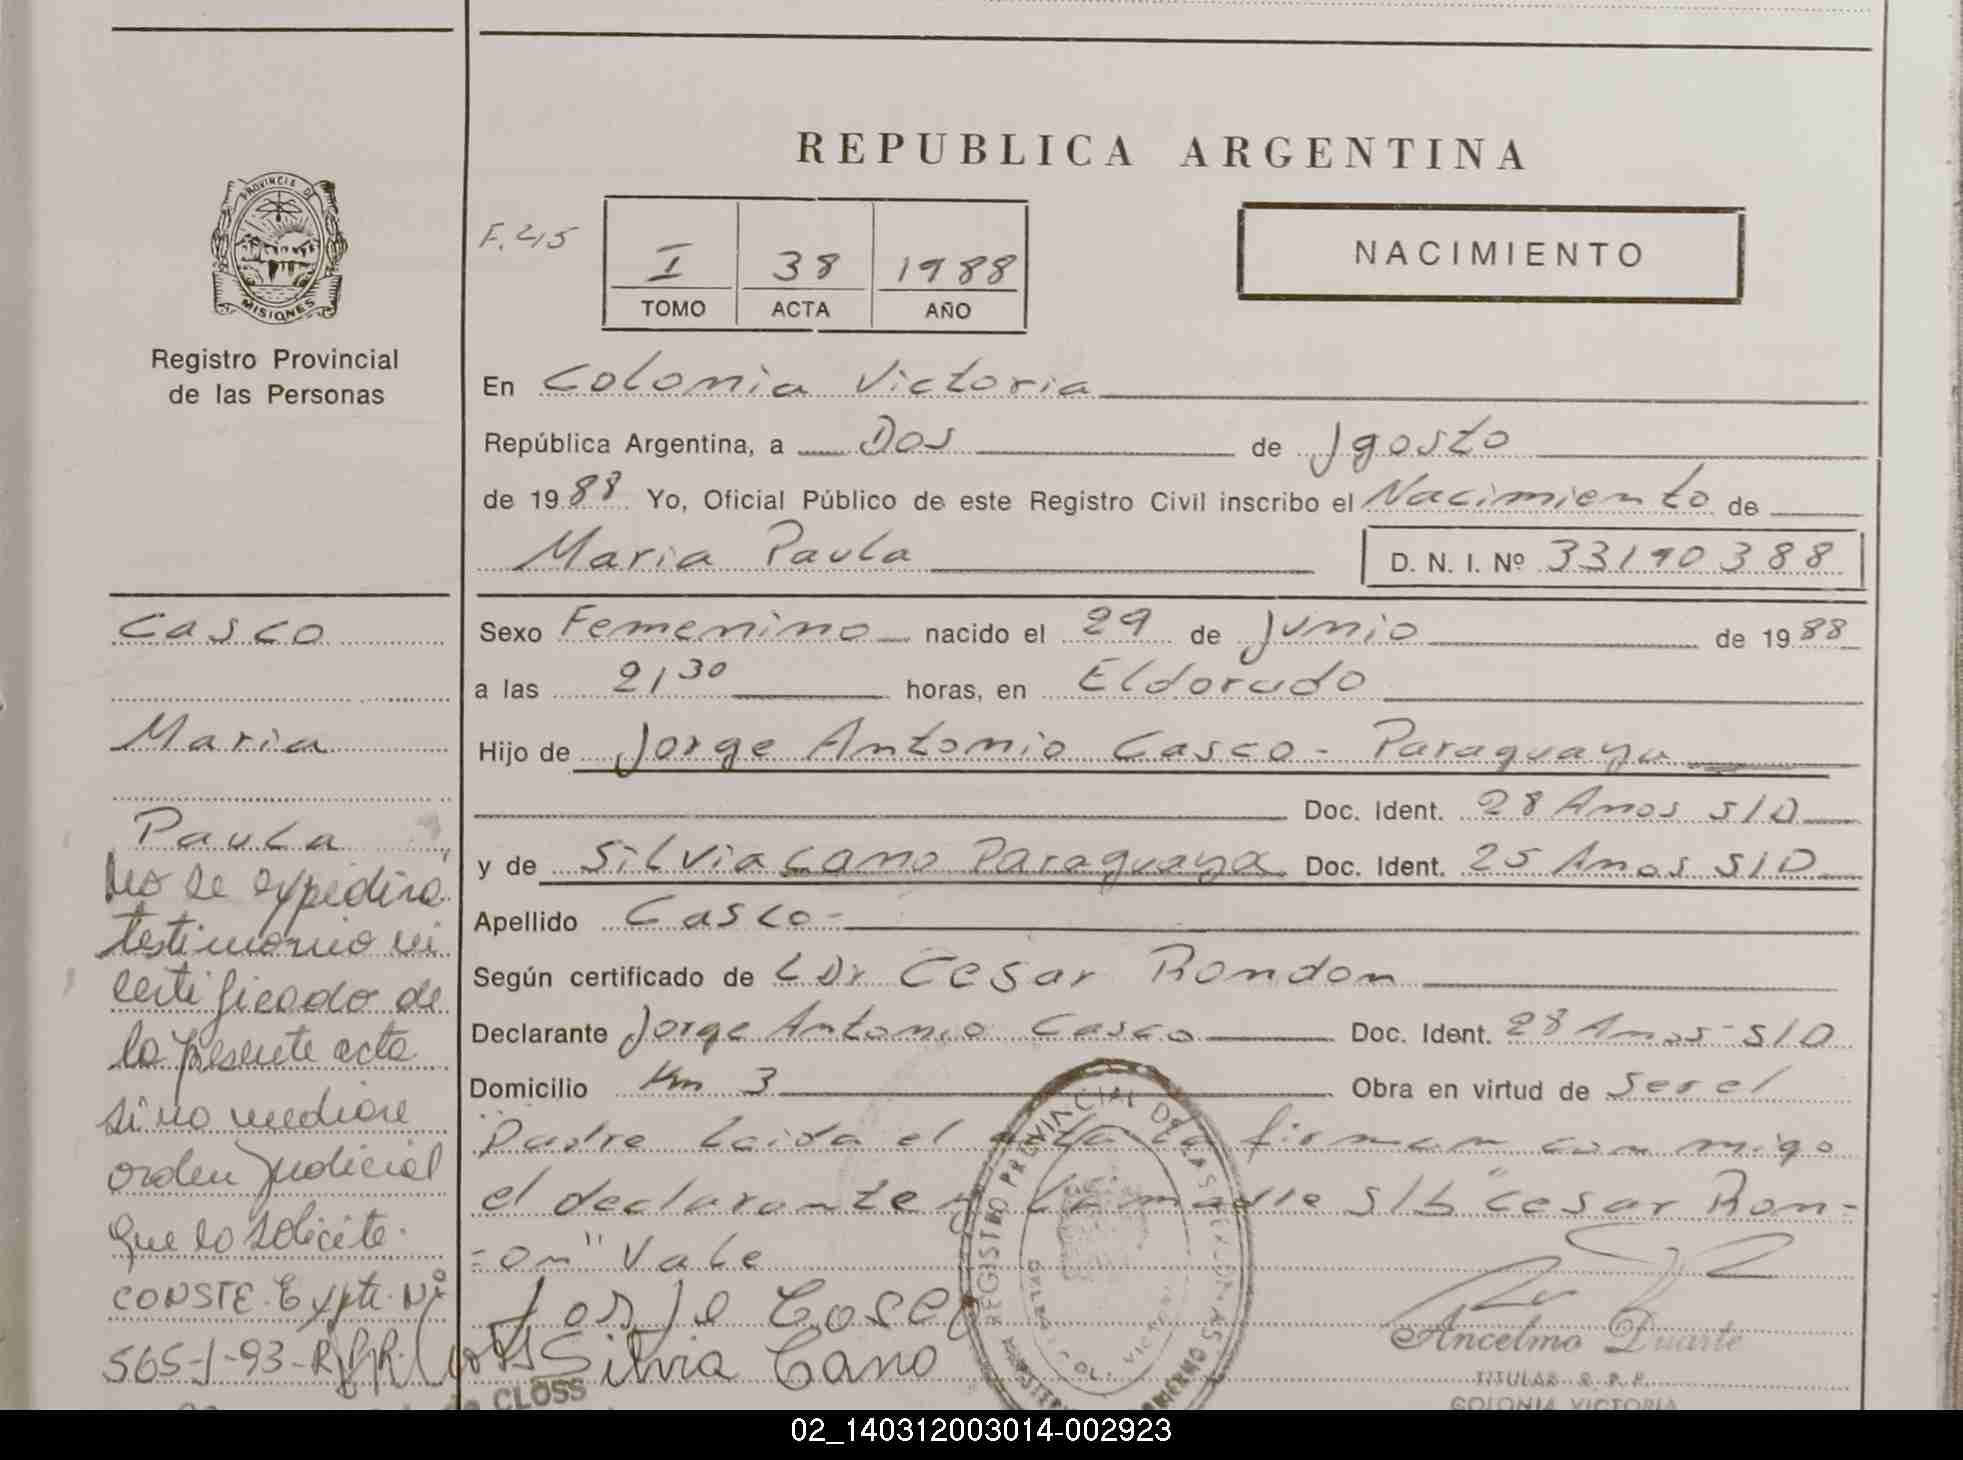 REPUBLICA ARGENTINA
PROVINCIA D
MISIONES
Registro Provincial
de las Personas
F. 45
I 38 1988
TOMO ACTA AÑO
NACIMIENTO
En Colonia Victoria
República Argentina, a Dos de Agosto
de 1988 Yo, Oficial Público de este Registro Civil inscribo el Nacimiento de
Maria Paula D. N. I. Nº 33190388
Sexo Femenino nacido el 29 de Junio de 1988
a las 21 30 horas, en Eldorado
Hijo de Jorge Antonio Casco - Paraguayo
Doc. Ident. 28 Anos S/D
y de Silvia Cano Paraguaya Doc. Ident. 25 Anos S/D
Apellido Casco -
Según certificado de Dr Cesar Rondon
Declarante Jorge Antonio Casco Doc. Ident. 28 Anos - S/D
Domicilio Km 3 Obra en virtud de Ser el
Padre Leida el acta la firman con migo
el declarante y la madre S/b "Cesar Ron-
=on" Vale
Jorje Cosco
Silvia Cano
Ancelmo Duarte
TITULAR R. P. P.
COLONIA VICTORIA
REGISTRO PROVINCIAL DE LAS PERSONAS
Casco
Maria
Paula
No se expedirá
testimonio ni
certificado de
la presente acta
si no mediare
orden judicial
que lo solicite.
CONSTE. Expte. Nº
565-J-93-R.P.P.
CLOSS
02_140312003014-002923